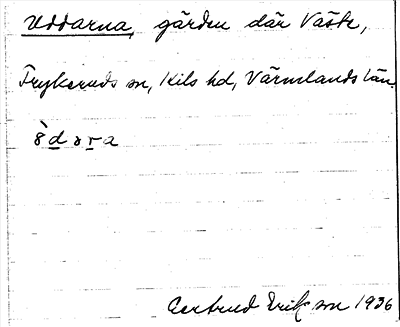 Uddarna, gården där Väste,
Frykeruds sn, Kils hd, Värmlands län.
Gertrud Erikson 1936